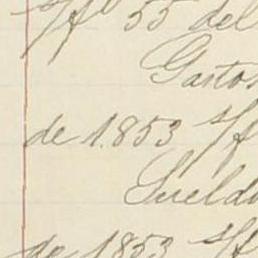 s/fo 55 del
Gastos
de 1.853 s/f
Sueldo
de 1853 s/f